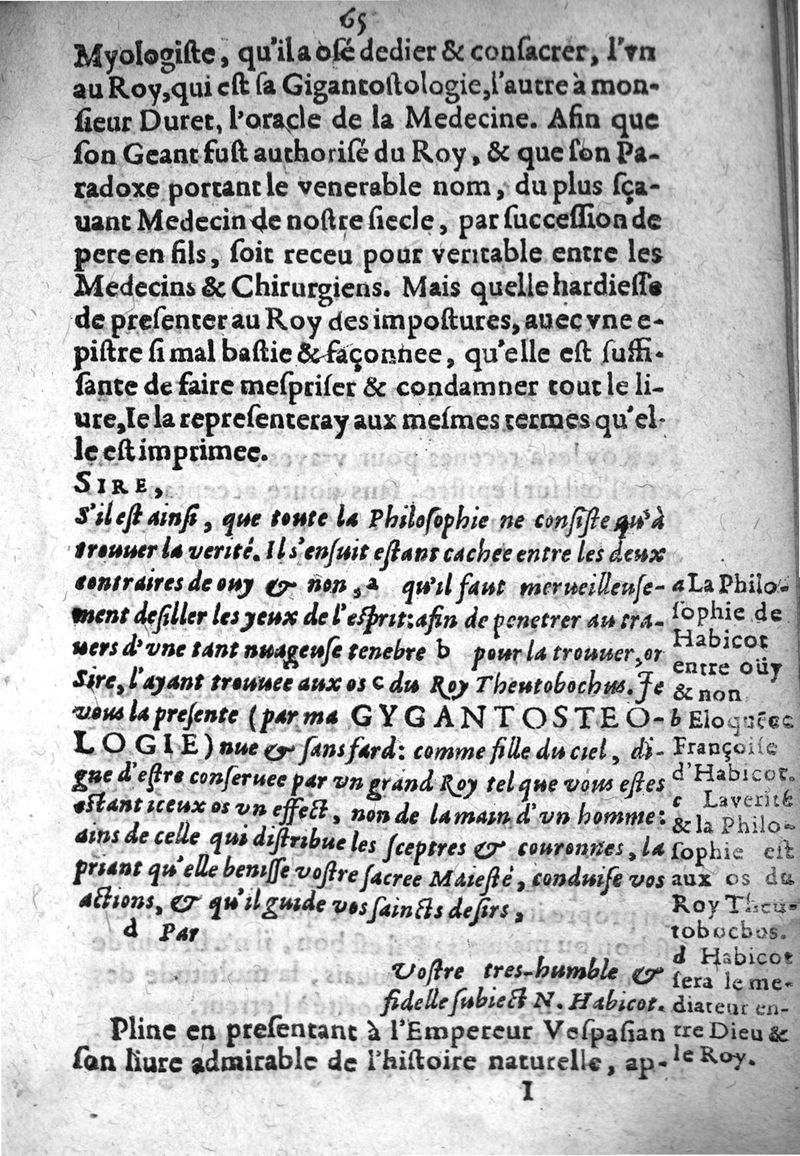 65
Myologiſte, qu'il a oſé dedier & conſacrer, l'vn
au Roy, qui eſt ſa Gigantoſtologie, l'autre à mon-
ſieur Duret, l'oracle de la Medecine. Afin que
ſon Geant fuſt authoriſé du Roy, & que ſon Pa-
radoxe portant le venerable nom, du plus ſça-
uant Medecin de noſtre ſiecle, par ſucceſſion de
pere en fils, ſoit receu pour veritable entre les
Medecins & Chirurgiens. Mais quelle hardieſſe
de preſenter au Roy des impoſtures, auec vne e-
piſtre ſi mal baſtie & façonnee, qu'elle eſt ſuffi-
ſante de faire meſpriſer & condamner tout le li-
ure, Ie la repreſenteray aux meſmes termes qu'el-
le eſt imprimee.
SIRE,
S'il eſt ainſi, que toute la Philoſophie ne conſiſte qu'à
trouuer la verité. Il s'enſuit eſtant cachee entre les deux
contraires de ouy & non, a qu'il faut merueilleuſe-
ment deſiller les yeux de l'eſprit: afin de penetrer au tra-
uers d'vne tant nuageuſe tenebre b pour la trouuer, or
Sire, l'ayant trouuee aux os c du Roy Theutobochus. Je
vous la preſente (par ma GYGANTOSTEO-
LOGIE) nue & ſans fard: comme fille du ciel, di-
gne d'eſtre conſeruee par vn grand Roy tel que vous eſtes
eſtant iceux os vn effect, non de la main d'vn homme:
ains de celle qui diſtribue les ſceptres & couronnes, la
priant qu'elle beniſſe voſtre ſacree Maieſté, conduiſe vos
actions, & qu'il guide vos ſaincts deſirs,
d Par
Voſtre tres-humble &
fidelle ſubiect N. Habicot.
Pline en preſentant à l'Empereur Veſpaſian
ſon liure admirable de l'hiſtoire naturelle, ap-
I
a La Philo-
ſophie de
Habicot
entre oüy
& non
b Eloquēce
Françoiſe
d'Habicot.
c La verité
& la Philo-
ſophie eſt
aux os du
Roy Theu-
tobochos.
d Habicot
ſera le me-
diateur en-
tre Dieu &
le Roy.